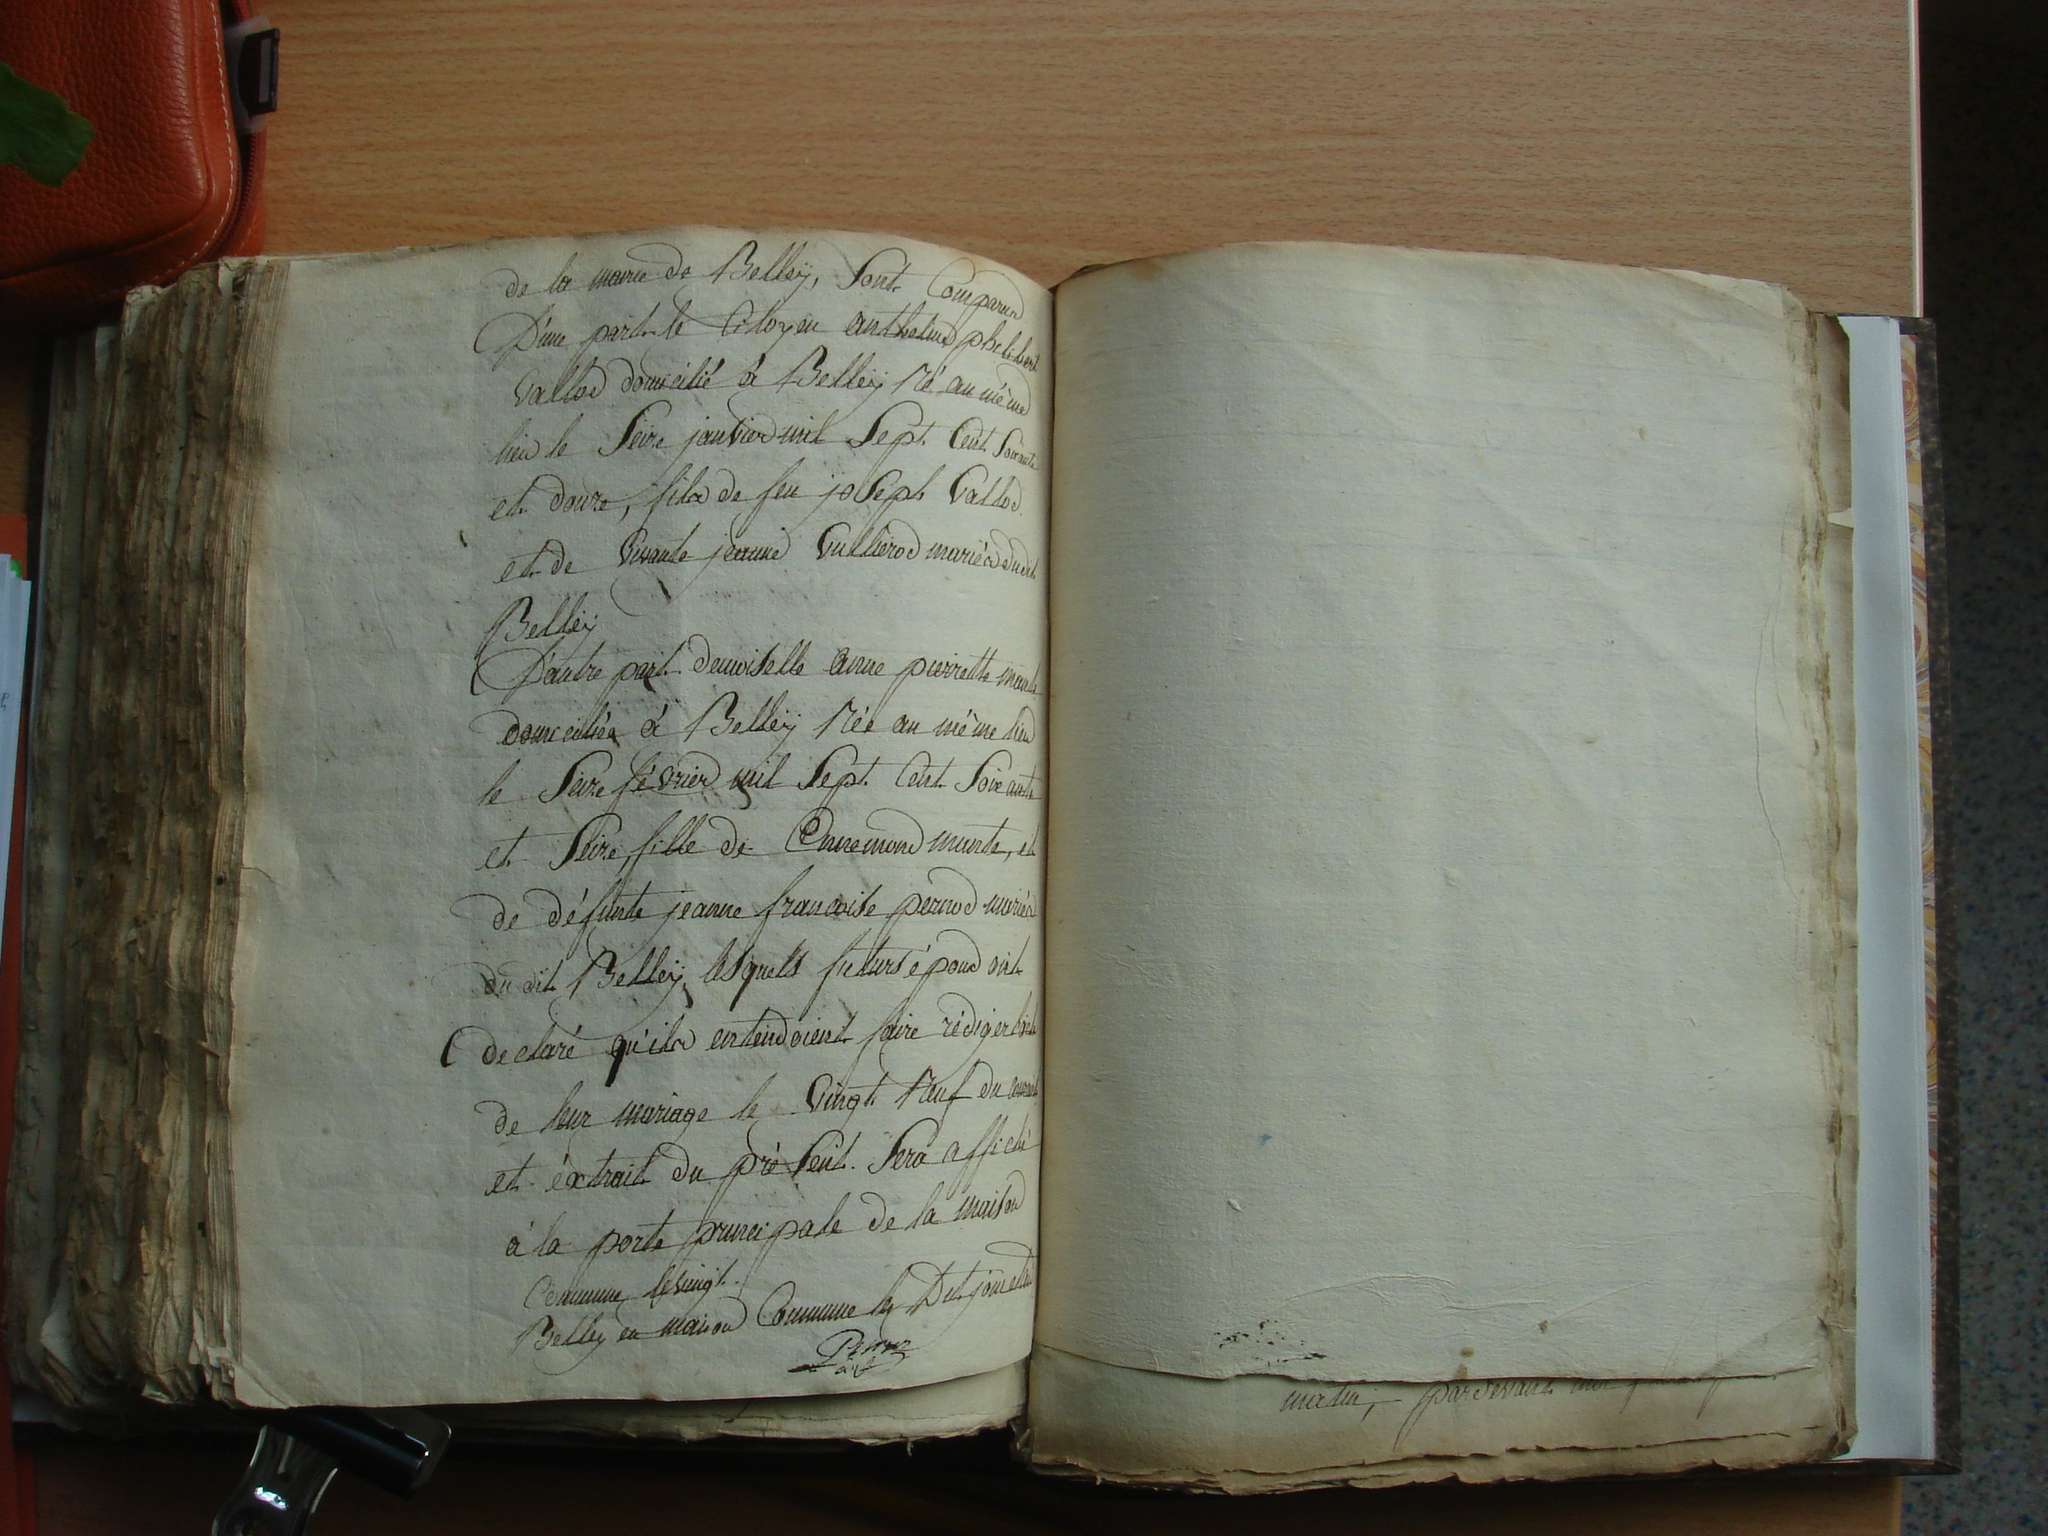 de la mairie de Belleÿ, sont Comparus
D'une part le Citoyen anthelme philibert
Vallod domicilié à Belleÿ Né au même
lieu le Seize janvier mil Sept Cent Soixante
et douze, fils de feu joseph Vallod
et de vivante jeanne Vullierod mariés dudit
Belleÿ
D'autre part demoiselle anne pierrette
domiciliée à Belleÿ Née au même lieu
le Seize février mil Sept Cent Soixante
et Seize, fille de Ennemond et
de défunte jeanne francoise pernod mariés
du dit Belleÿ, lesquels futurs époux ont
declaré qu'ils entendoient faire rédiger
de leur mariage le Vingt Neuf du courant
et éxtrait du présent Sera affiché
à la porte principale de la maison
Commune le vingt
Belleÿ en maison Commune les Dit jour et an
matin, pardevant